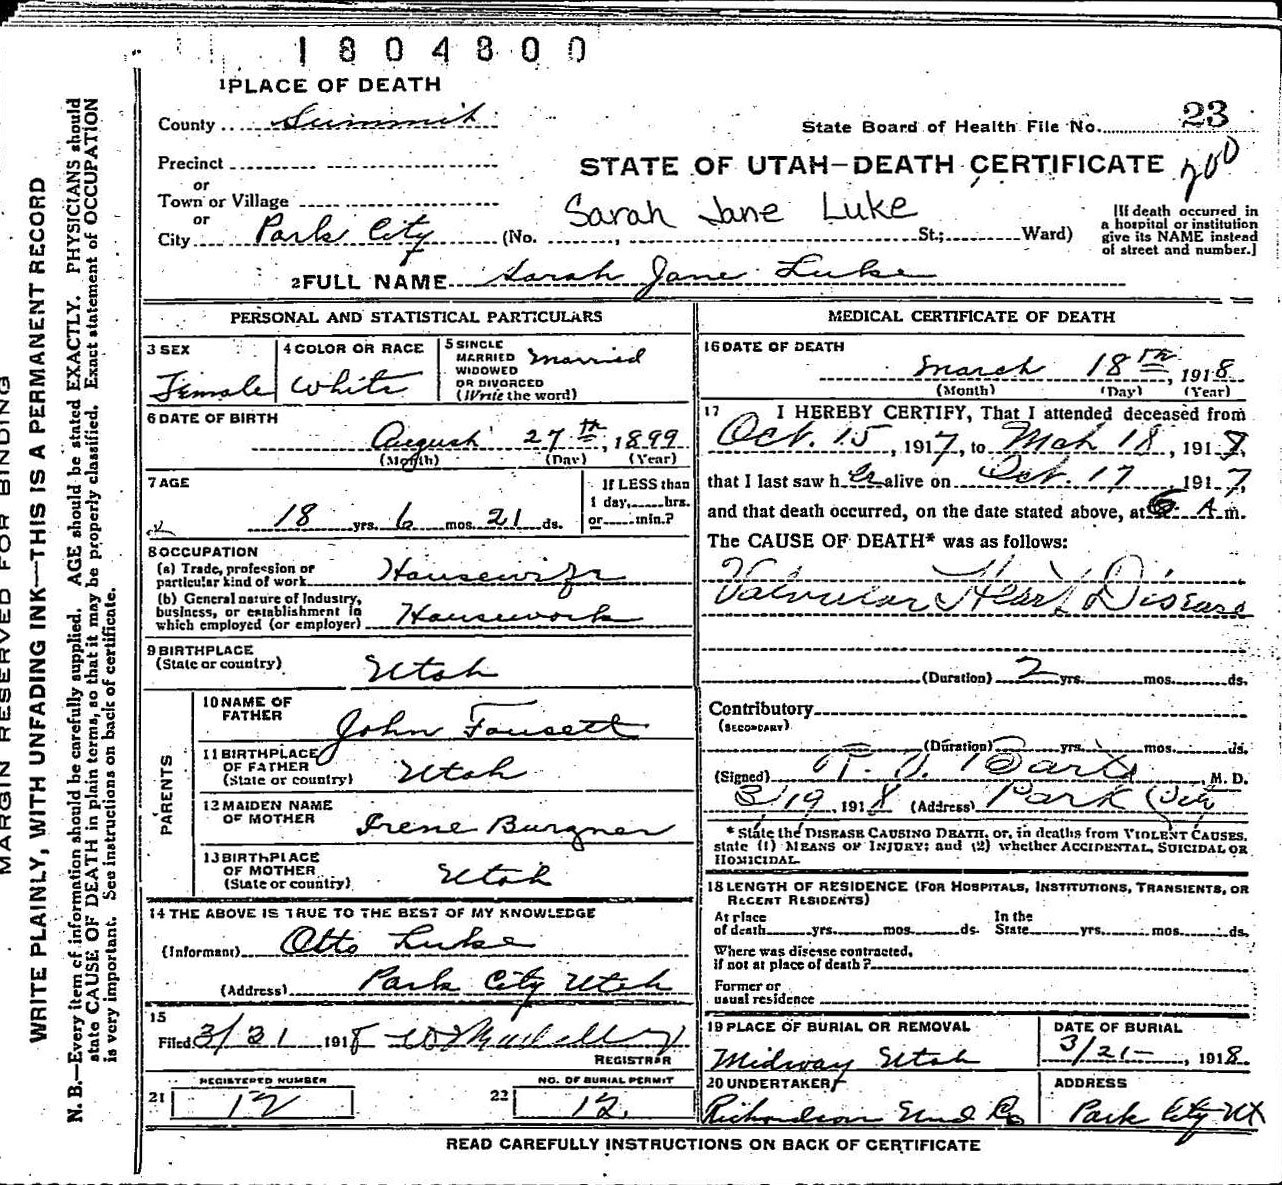 1804800
1 PLACE OF DEATH
County Summit
State Board of Health File No. 23
Precinct
or
Town or Village
or
City Park City (No. , St.; Ward)
STATE OF UTAH—DEATH CERTIFICATE
200
Sarah Jane Luke
[If death occurred in
a hospital or institution
give its NAME instead
of street and number.]
2 FULL NAME Sarah Jane Luke
PERSONAL AND STATISTICAL PARTICULARS
3 SEX
Female
4 COLOR OR RACE
White
5 SINGLE
MARRIED
WIDOWED
OR DIVORCED
(Write the word)
Married
6 DATE OF BIRTH
August 27th, 1899
(Month) (Day) (Year)
7 AGE
18 yrs. 6 mos. 21 ds.
If LESS than
1 day, hrs.
or min.?
8 OCCUPATION
(a) Trade, profession or
particular kind of work Housewife
(b) General nature of Industry,
business, or establishment in
which employed (or employer) Housework
9 BIRTHPLACE
(State or country) Utah
PARENTS
10 NAME OF
FATHER John Fausett
11 BIRTHPLACE
OF FATHER
(State or country) Utah
12 MAIDEN NAME
OF MOTHER Irene Burgner
13 BIRTHPLACE
OF MOTHER
(State or country) Utah
14 THE ABOVE IS TRUE TO THE BEST OF MY KNOWLEDGE
(Informant) Otto Luke
(Address) Park City Utah
15
Filed 3/21 1918
REGISTRAR
REGISTERED NUMBER
21 12
NO. OF BURIAL PERMIT
22 12.
MEDICAL CERTIFICATE OF DEATH
16 DATE OF DEATH
March 18th, 1918
(Month) (Day) (Year)
17 I HEREBY CERTIFY, That I attended deceased from
Oct. 15, 1917, to Mch 18, 1918,
that I last saw her alive on Oct. 17 1917,
and that death occurred, on the date stated above, at 6 A m.
The CAUSE OF DEATH* was as follows:
Valvular Heart Disease
(Duration) 2 yrs. mos. ds.
Contributory
(SECONDARY)
(Duration) yrs. mos. ds.
(Signed) , M. D.
3/19, 1918 (Address) Park City
* State the DISEASE CAUSING DEATH, or, in deaths from VIOLENT CAUSES,
state (1) MEANS OF INJURY; and (2) whether ACCIDENTAL, SUICIDAL OR
HOMICIDAL.
18 LENGTH OF RESIDENCE (FOR HOSPITALS, INSTITUTIONS, TRANSIENTS, OR
RECENT RESIDENTS)
At place
of death yrs. mos. ds.
In the
State yrs. mos. ds.
Where was disease contracted,
if not at place of death?
Former or
usual residence
19 PLACE OF BURIAL OR REMOVAL
Midway Utah
DATE OF BURIAL
3/21, 1918
20 UNDERTAKER
Richardson Und Co
ADDRESS
Park City Ut
READ CAREFULLY INSTRUCTIONS ON BACK OF CERTIFICATE
MARGIN RESERVED FOR BINDING
WRITE PLAINLY, WITH UNFADING INK—THIS IS A PERMANENT RECORD
N. B.—Every item of information should be carefully supplied. AGE should be stated EXACTLY. PHYSICIANS should
state CAUSE OF DEATH in plain terms, so that it may be properly classified. Exact statement of OCCUPATION
is very important. See instructions on back of certificate.